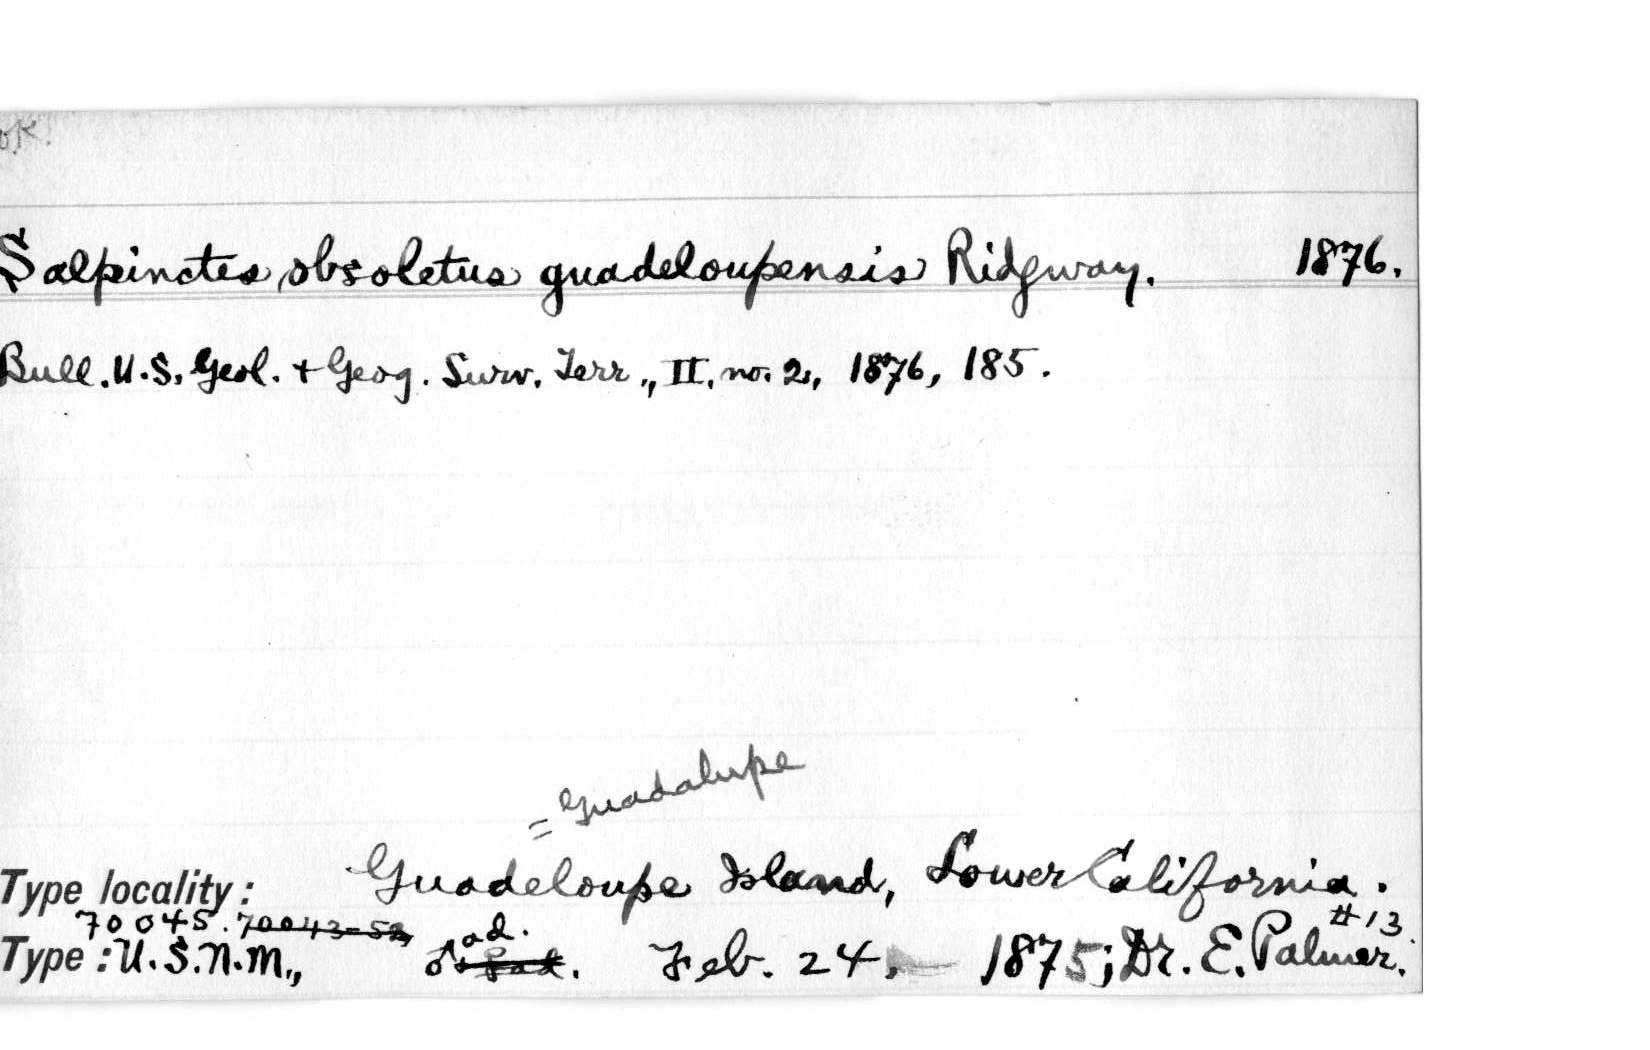 OK.
Salpinctes obsoletus guadeloupensis Ridgway. 1876.
Bull. U.S. Geol. + Geog. Surv. Terr., II, no. 2, 1876, 185.
= Guadalupe
Guadeloupe Island, Lower California.
Type locality:
70045. 70043-52, ad. #13.
Type: U.S.N.M., ♂ Feb. 24, 1875; Dr. E. Palmer.